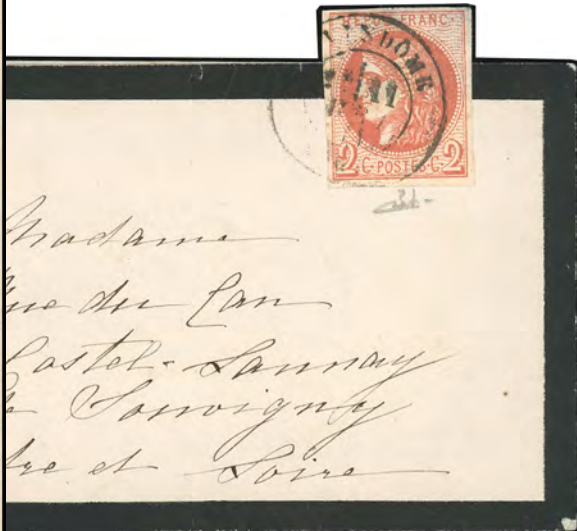 REPUB FRANC
VENDOME
11
2 C·POSTES·C 2
Madame
du Can
Castel-Launay
Souvigny
et Loire